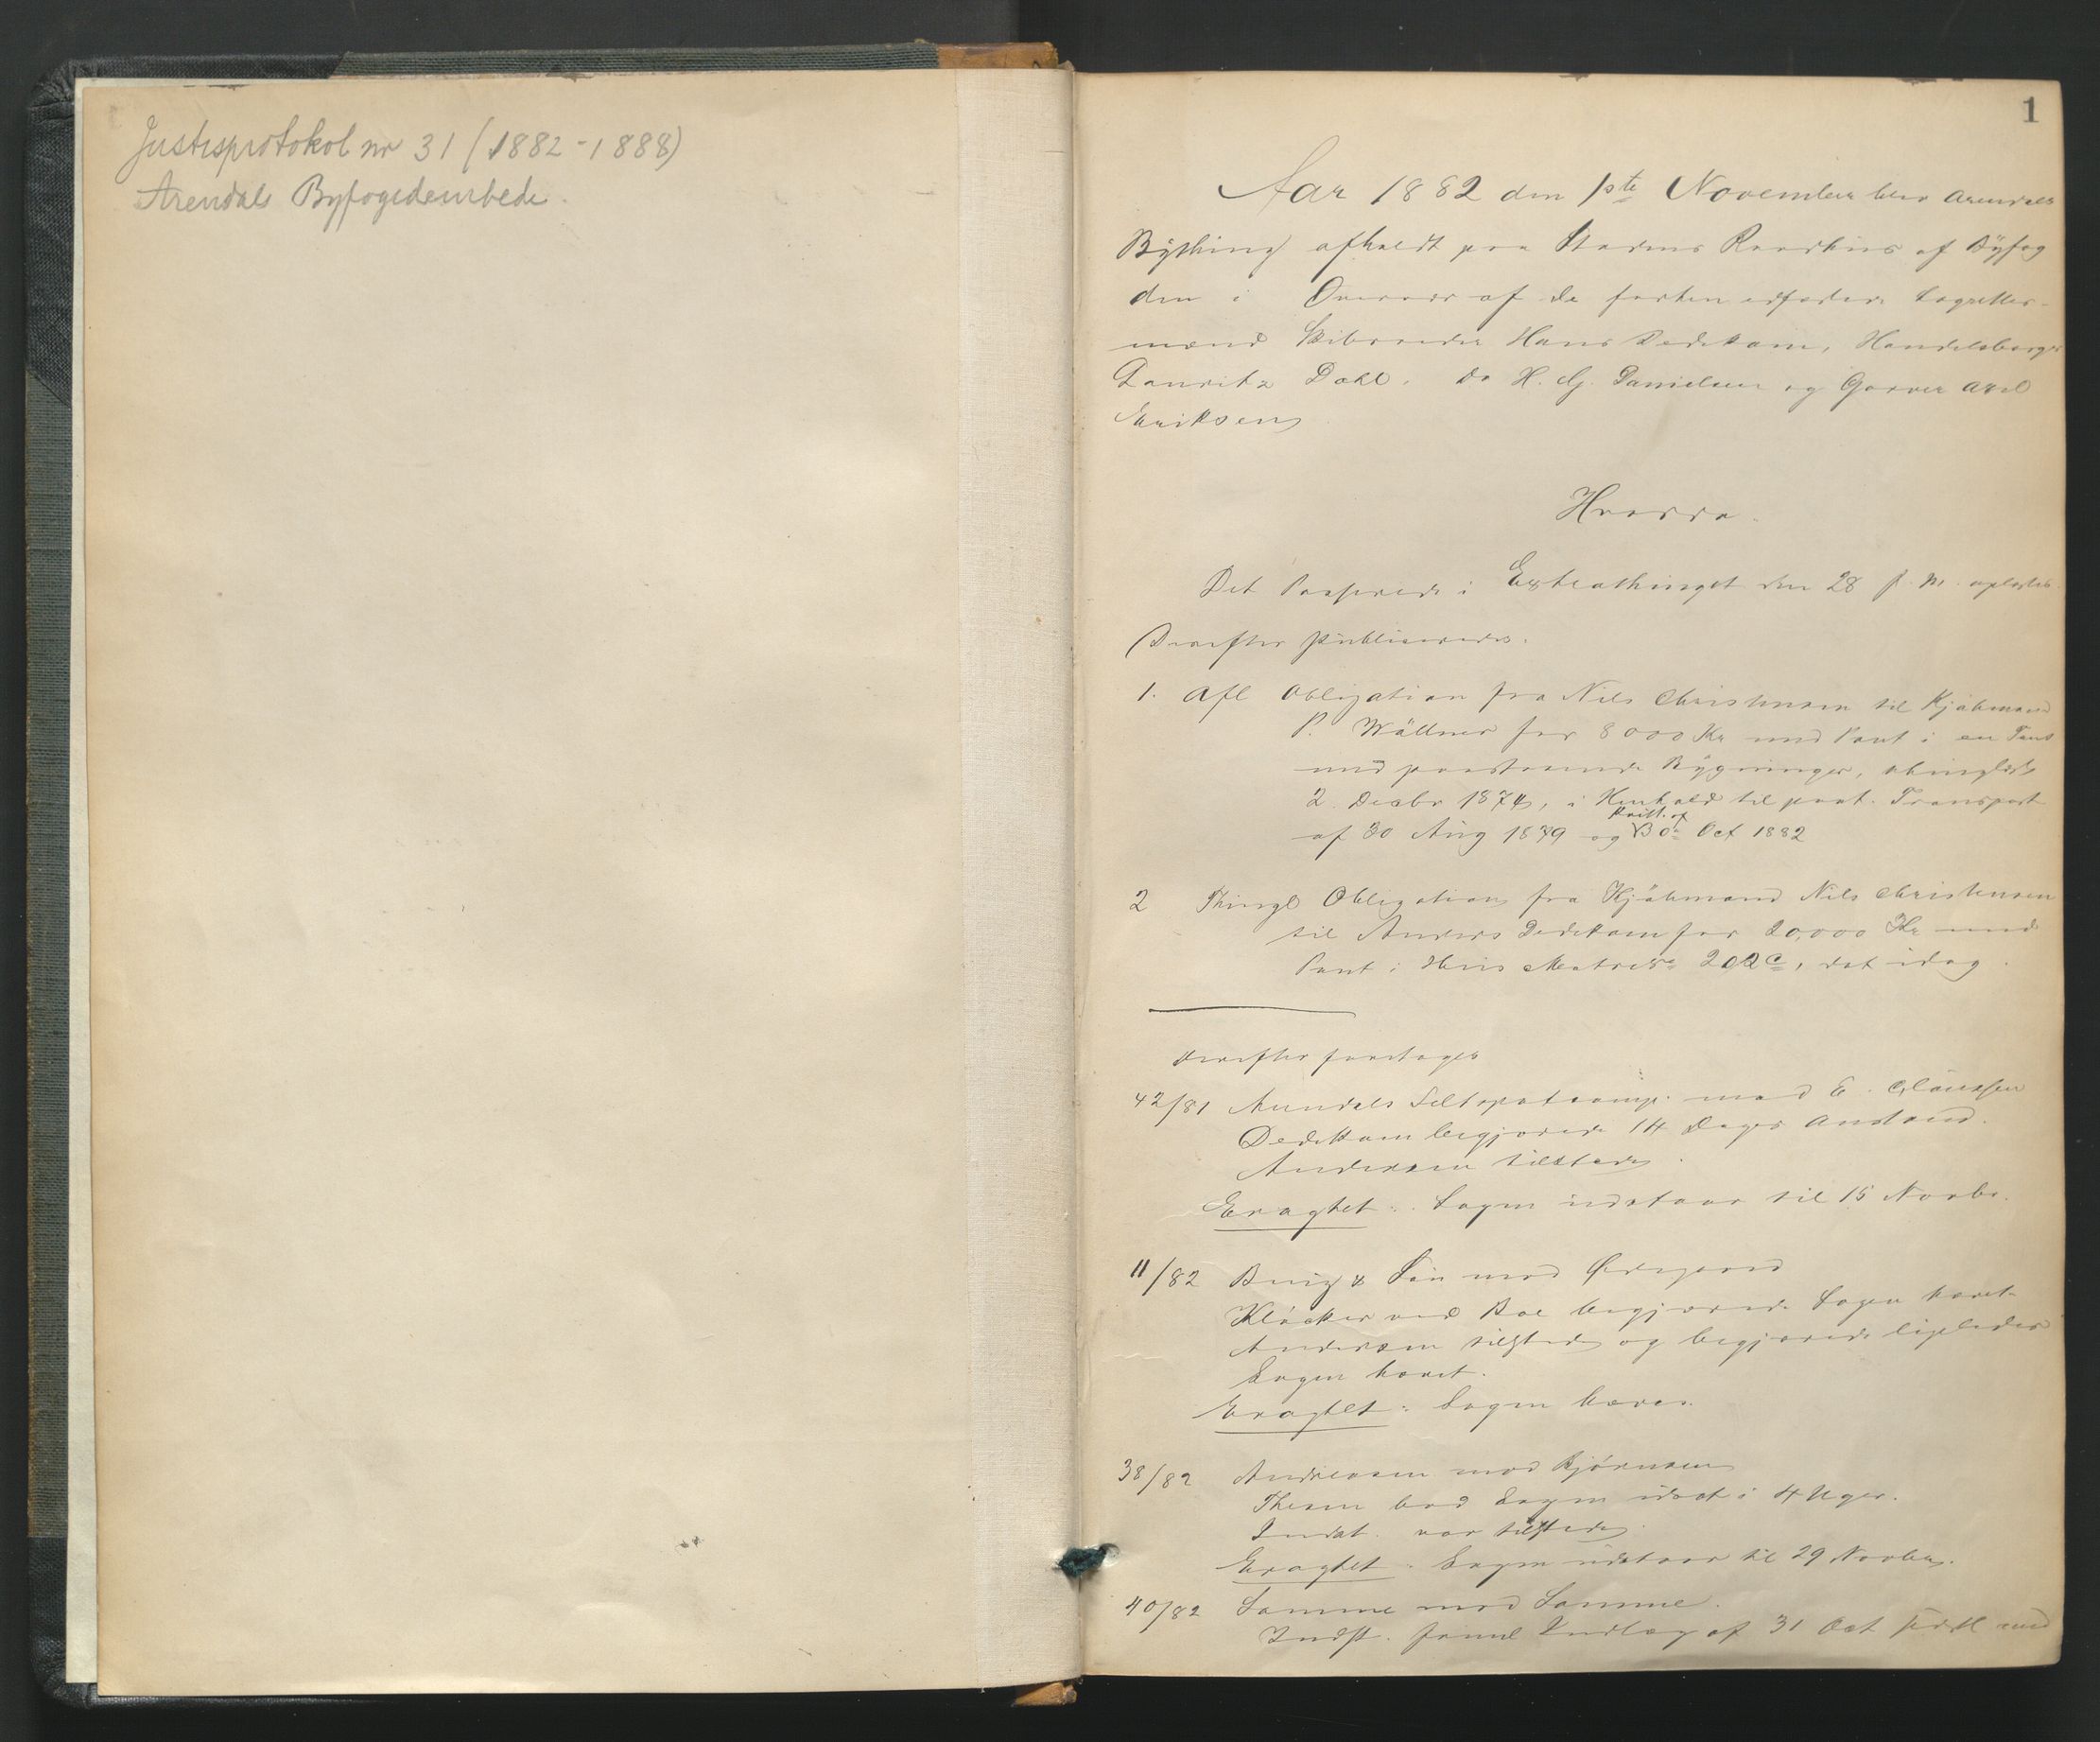 Justisprotokol nr 31 (1882-1888)
Arendals Byfogedembede.
1
Aar 1882 den 1ste November blev Arendals
Bything afholdt paa Stadens Raadhus af Byfog
den i Overvær af de forhen edfæstede Lagrettes-
mænd Skibsreder Hans Dedekam, Handelsborger
Lauritz Dahl, do H. G. Danielsen og Garver Axel
Eriksen
Hvorda
Det Passerede i Extrathinget den 28 f. M. oplæstes
Derefter publiceredes:
1. Afl Obligation fra Nils Christensen til Kjøbmand
P. Wällner for 8000 Kr med Pant i en Tomt
med paastaaende Bygninger, thinglæst
2 Decbr 1874, i Henhold til paat. Transport
af 30 Aug 1879 og Kvitt. af 30 Oct 1882
2 Thingl Obligation fra Kjøbmand Nils Christensen
til Anders Dedekam for 20,000 Kr med
Pant i Huus Matr 202 c, dat idag.
Derefter foretoges
42/81 Arendals Feltspatcomp. mod E. Claussen
Dedekam begjærede 14 Dages Anstand.
Andersen tilstede.
Eragtet: Sagen udstaar til 15 Novbr.
11/82 & Søn mod Ødegaard
Kløcker ved Boe begjærede Sagen hævet.
Andersen tilstede og begjærede ligeledes
Sagen hævet.
Eragtet: Sagen hæves.
38/82 Andreasen mod Bjørnsen
Thesen bad Sagen udsat i 4 Uger.
Indst. var tilstede.
Eragtet: Sagen udstaar til 29 Novbr.
40/82 Samme mod Samme.
Indst. Indlæg af 31 Oct med